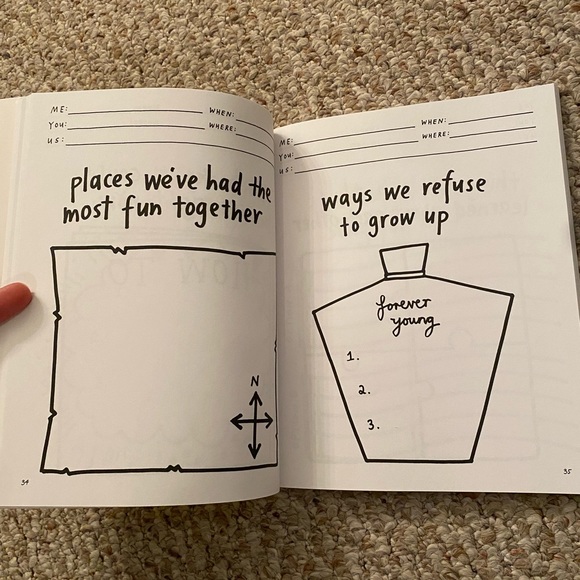 ME:
WHEN:
YOU:
WHERE:
US:
places we've had the
most fun together
N
34
ME:
WHEN:
YOU:
WHERE:
US:
ways we refuse
to grow up
forever
young
1.
2.
3.
35